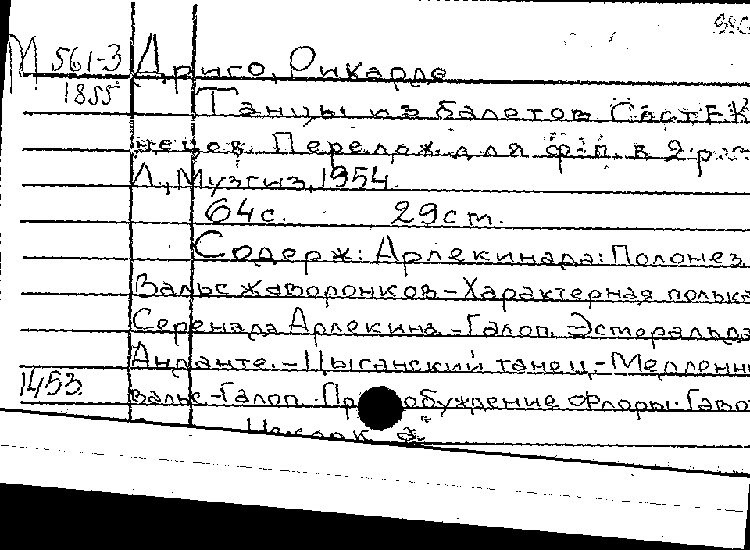 М 561-3 Дриго, Рикардо
1855 Танцы из балетов. Сост. Е. К
нецов. Перелож. для ф-п. в 2 р
Л., Музгиз, 1954.
64 с. 29 см.
Содерж: Арлекинада: Полонез
Вальс жаворонков - Характерная полька
Серенада Арлекина. - Галоп. Эсмеральда
Анданте. - Цыганский танец - Медленн
1453 вальс - Галоп. Пробуждение Флоры. Гаво